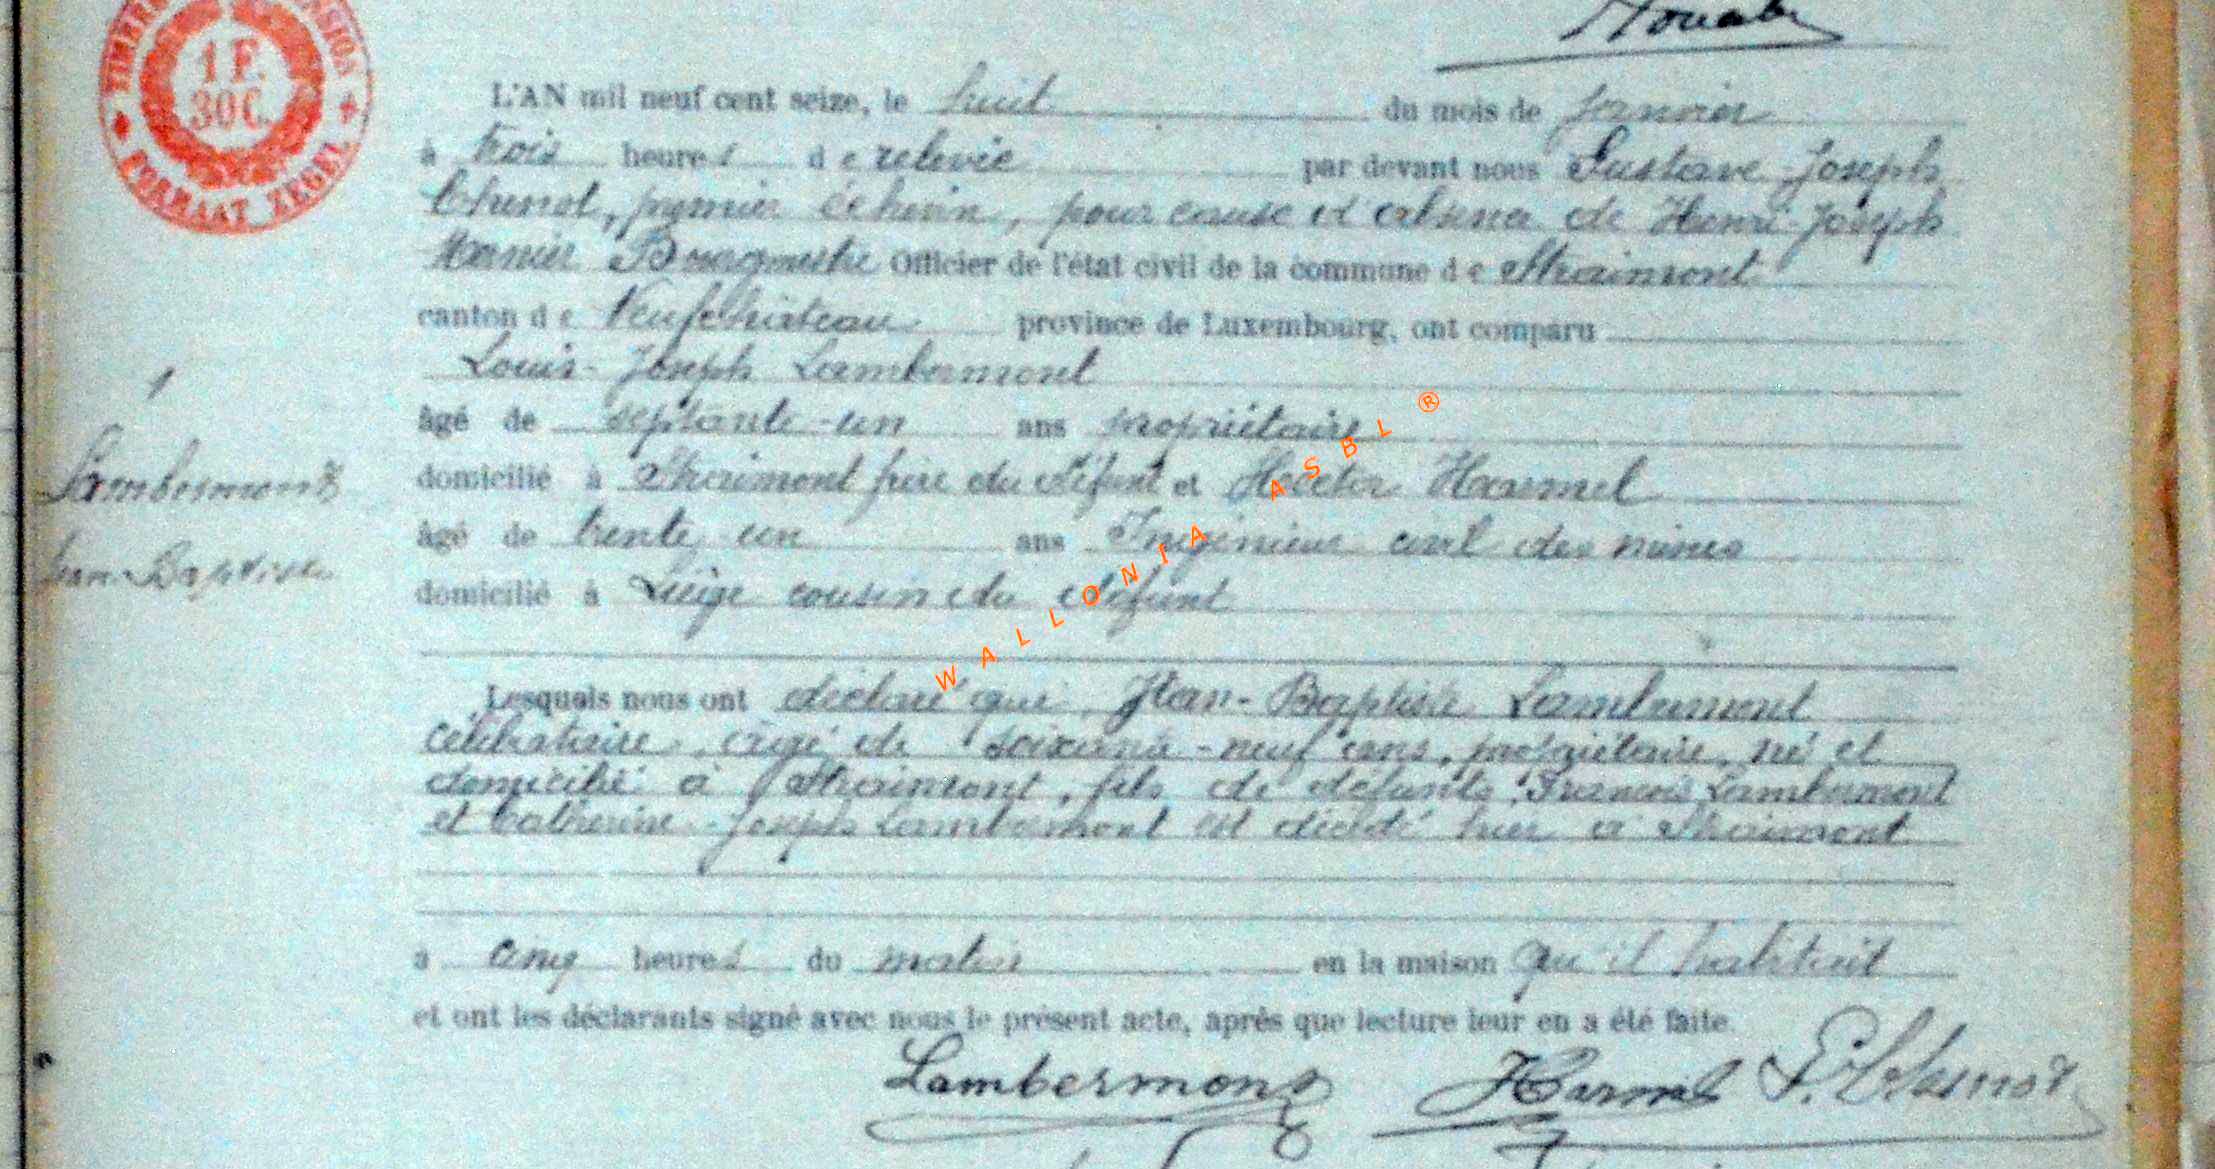 1 F.
30 C.
FORMAAT ZEGEL
L'AN mil neuf cent seize, le huit du mois de Janvier
à trois heures de relevée par devant nous Gustave-Joseph
premier échevin, pour cause d'absence de Henri-Joseph
Bourgmestre Officier de l'état civil de la commune de Straimont
canton de Neufchâteau province de Luxembourg, ont comparu
Louis-Joseph Lambermont
1
âgé de septante-un ans propriétaire
Lambermont
domicilié à Straimont frère du défunt et Hector Harmel
âgé de trente un ans Ingénieur civil des mines
Jean-Baptiste
domicilié à Liège cousin du défunt
WALLONIA ASBL ®
Lesquels nous ont déclaré que Jean-Baptiste Lambermont
célibataire, âgé de soixante-neuf ans, propriétaire, né et
domicilié à Straimont, fils de défunts François Lambermont
et Catherine-Joseph Lambermont est décédé hier à Straimont
à cinq heures du matin en la maison qu'il habitait
et ont les déclarants signé avec nous le présent acte, après que lecture leur en a été faite.
Lambermont Harmel